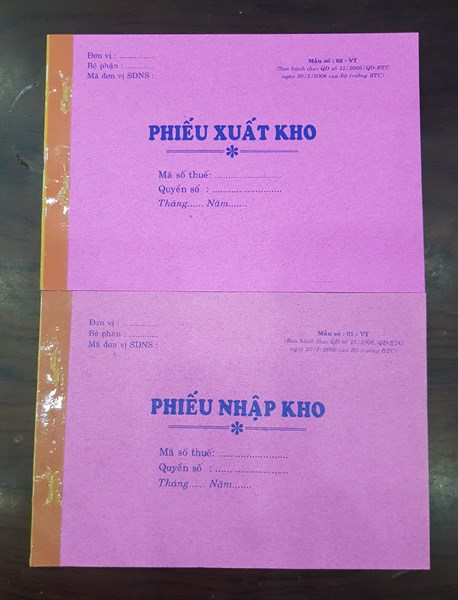 Đơn vị : ...............
Bộ phận : ............
Mã đơn vị SDNS :
Mẫu số : 02 - VT
(Ban hành theo QĐ số 15/2006/QĐ-BTC
ngày 20/3/2006 của Bộ trưởng BTC)
PHIẾU XUẤT KHO
Mã số thuế: ........................
Quyển số : .........................
Tháng...... Năm.......
Đơn vị : ...............
Bộ phận : ............
Mã đơn vị SDNS :
Mẫu số : 01 - VT
(Ban hành theo QĐ số 15/2006/QĐ-BTC
ngày 20/3/2006 của Bộ trưởng BTC)
PHIẾU NHẬP KHO
Mã số thuế: ........................
Quyển số : .........................
Tháng...... Năm.......